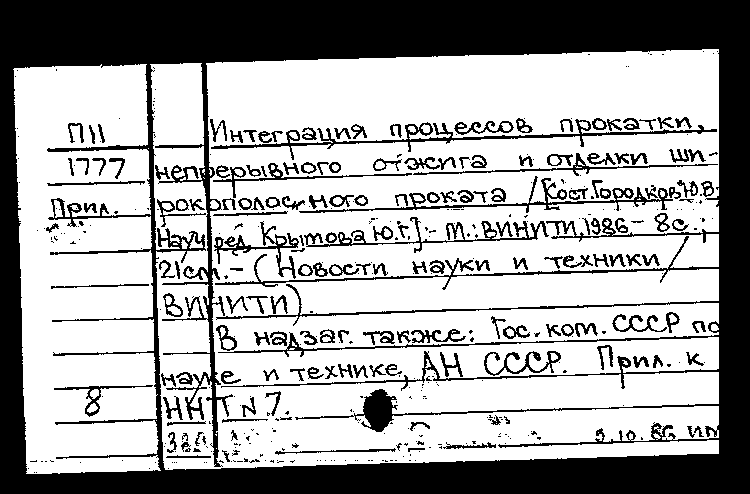 П11 Интеграция процессов прокатки,
1777 непрерывного отжига и отделки ши-
Прил. рокополосного проката / [Сост. Городков Ю.В;
Науч. ред. Крымова Ю.Г.] - М.: ВИНИТИ, 1986 - 8с.;
21см. - (Новости науки и техники /
ВИНИТИ).
В надзаг. также: Гос. ком. СССР по
науке и технике, АН СССР. Прил. к
8 ННТ N 7.
5.10.86